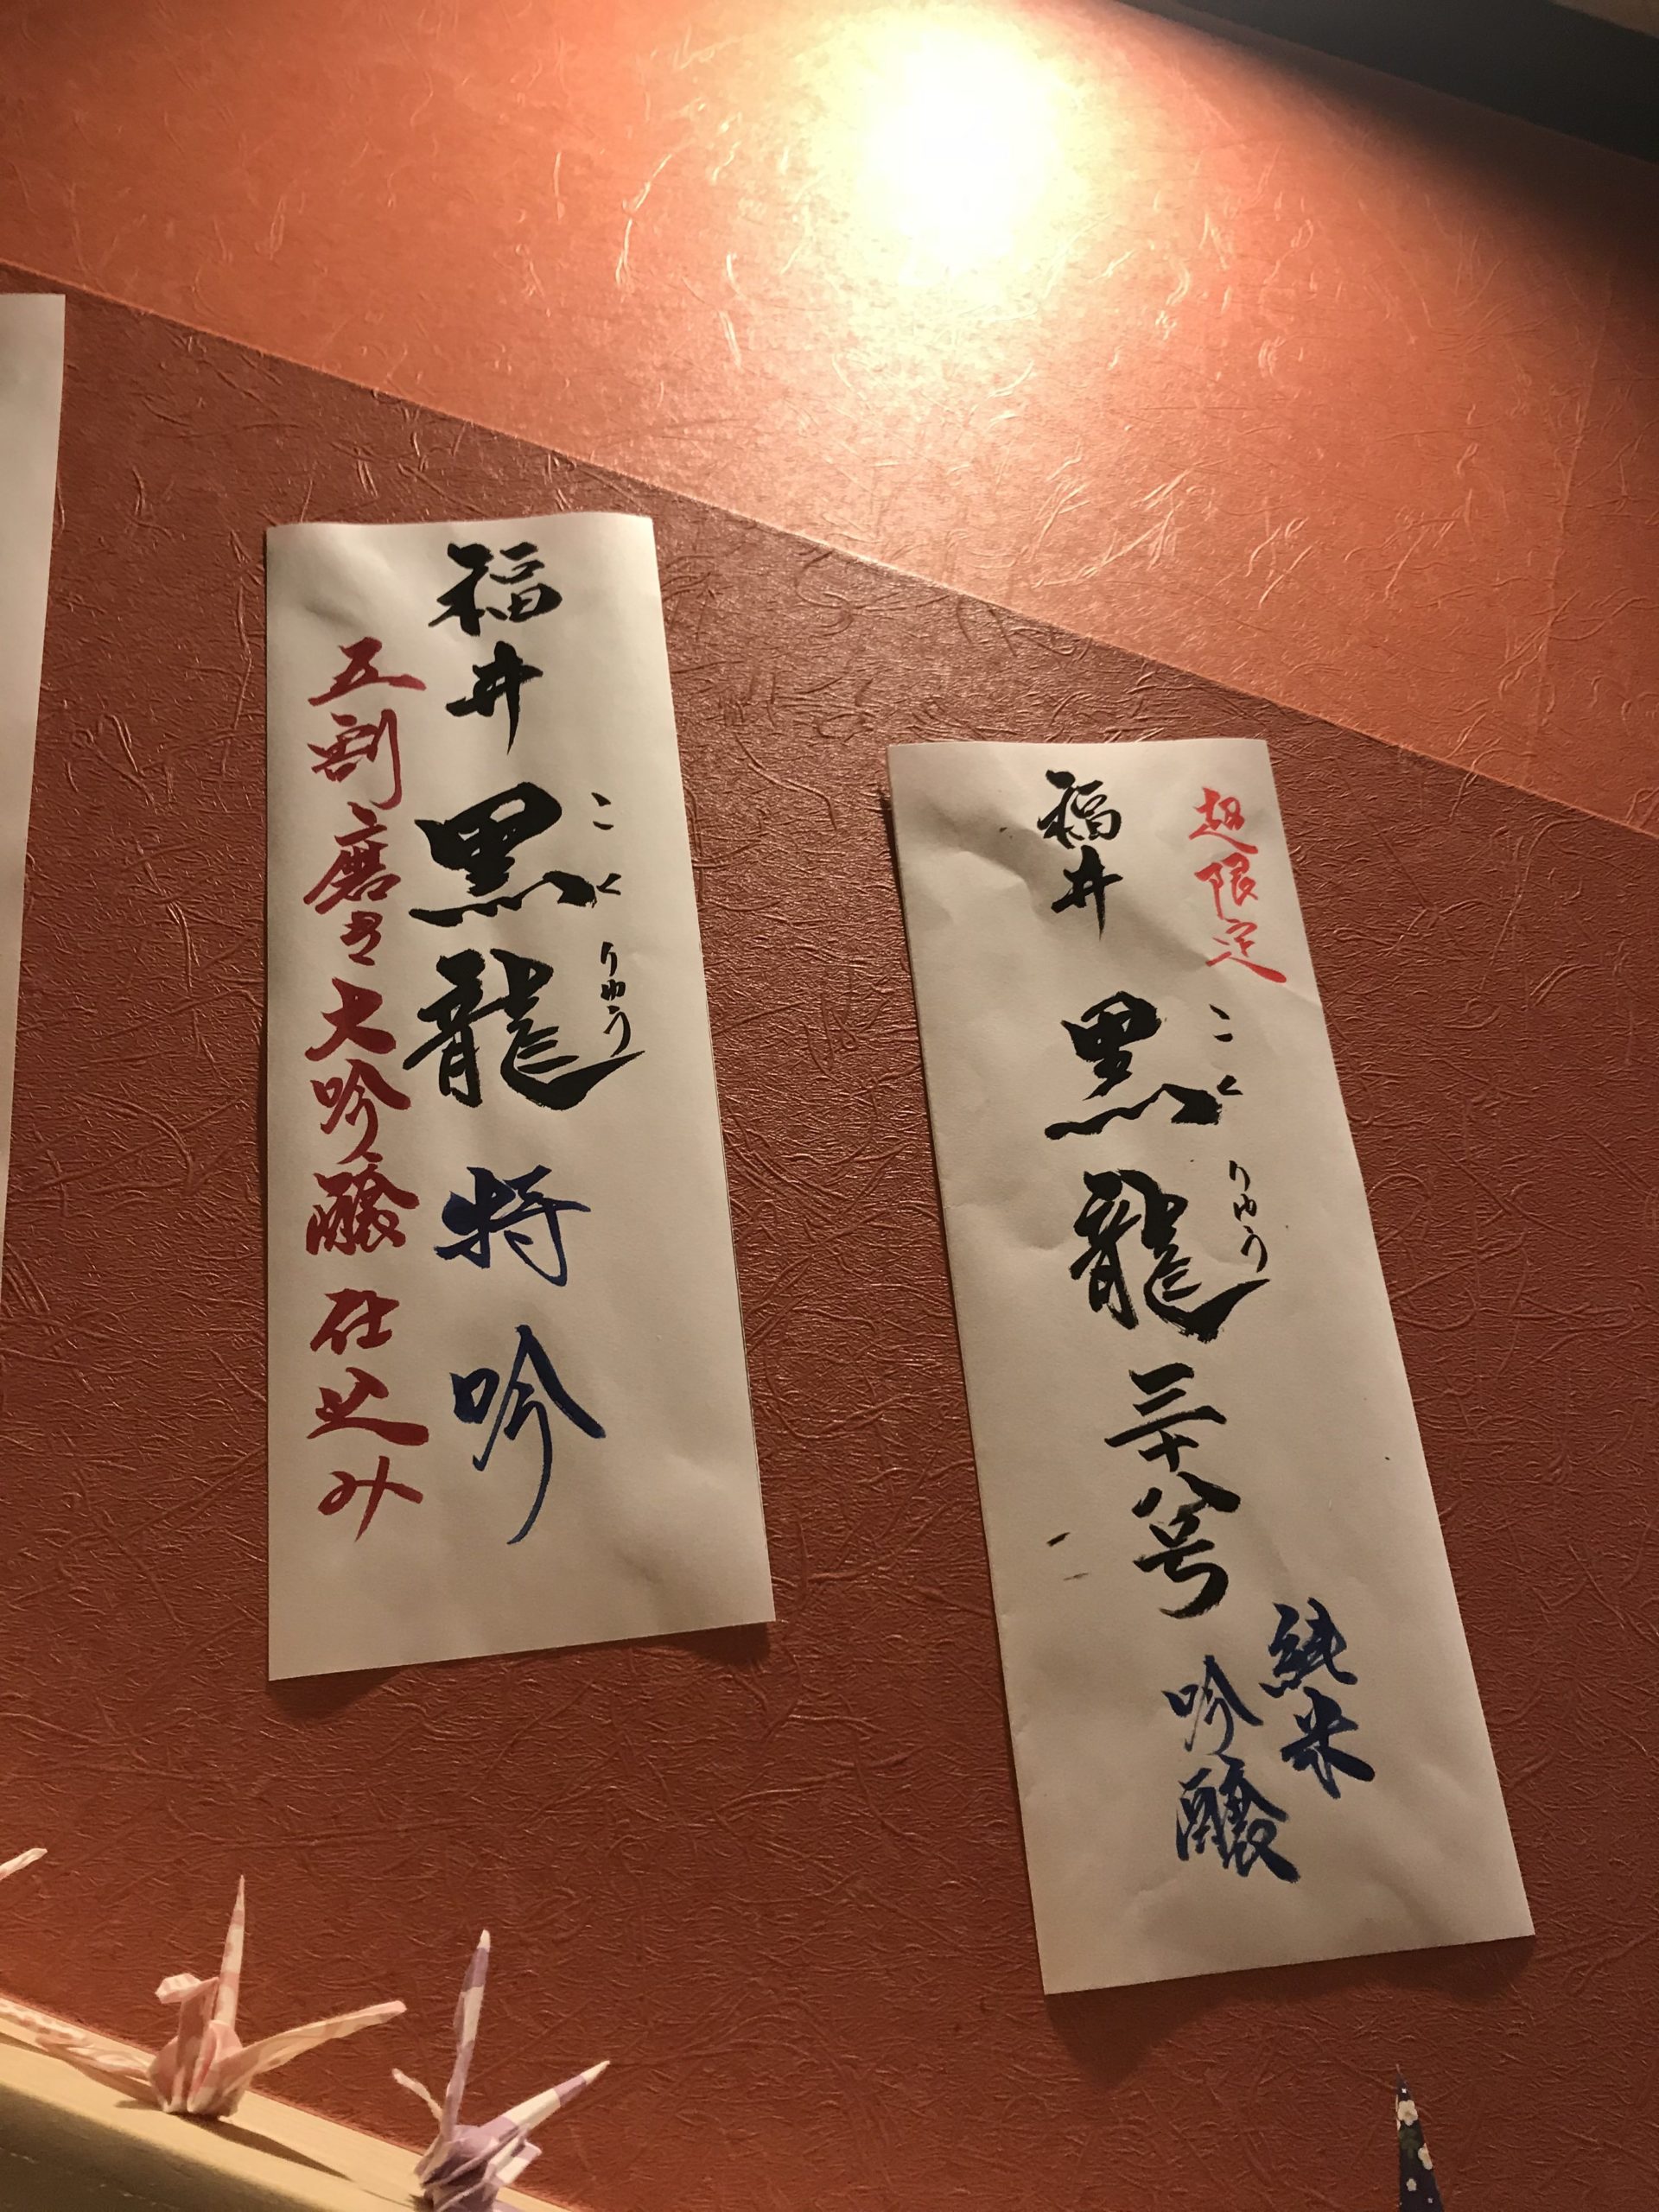 超限定
こくりゅう
福井 黒龍 三十八号
純米
吟醸
こくりゅう
福井 黒龍 特吟
五割磨き大吟醸仕込み